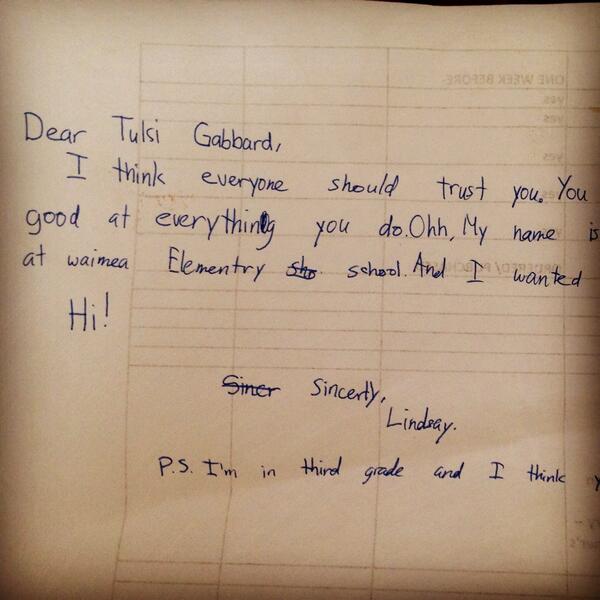 ONE WEEK BEFORE:
yes
yes
yes
Dear Tulsi Gabbard,
I think everyone should trust you. You
good at everything you do. Ohh, My name is
at waimea Elementry sho school. And I wanted
Hi!
Siner Sincertly,
Lindsay.
P.S. I'm in third grade and I think y